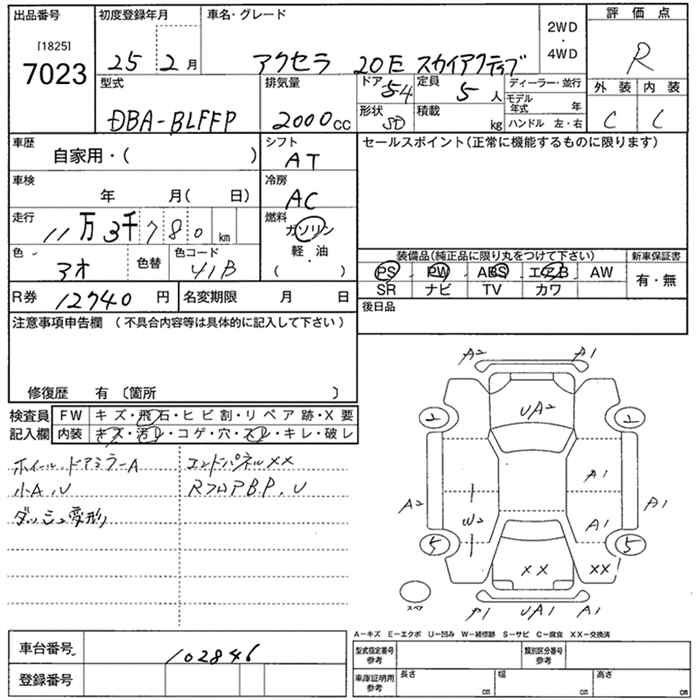 出品番号
[1825]
7023
初度登録年月
25 2 月
車名・グレード
アクセラ 20E スカイアクティブ
2WD
・
4WD
評価点
R
外装 内装
C C
型式
DBA-BLFFP
排気量
2000 CC
ドア 54
形状 SD
定員 5 人
積載 kg
ディーラー・並行
モデル年式 年
ハンドル 左・右
車歴
自家用・( )
シフト
AT
車検
年 月( 日)
冷房
AC
走行
11万3千780 km
燃料
ガソリン
軽・油
( )
色
アオ
色替
色コード
41B
R券 12740 円
名変期限 月 日
セールスポイント(正常に機能するものに限ります)
装備品(純正品に限り丸をつけて下さい)
PS PW ABS エアB AW
SR ナビ TV カワ
新車保証書
有・無
後日品
注意事項申告欄 (不具合内容等は具体的に記入して下さい)
修復歴 有 〔箇所 〕
検査員
記入欄
FW キズ・飛石・ヒビ割・リペア跡・X要
内装 キズ・汚レ・コゲ・穴・スレ・キレ・破レ
ホイール ドアミラーA
小A,U
ダッシュ変形
エンドパネルXX
RフロアB.P,U
A2 A1
2 UA2 2
A1
A2 A1
W2 A1
5 XX XX 5
スペア
A1 UA1 A1
A－キズ E－エクボ U－凹み W－補修跡 S－サビ C－腐食 XX－交換済
車台番号
102846
登録番号
型式指定番号
参考
類別区分番号
参考
車庫証明用
参考
長さ cm
幅 cm
高さ cm